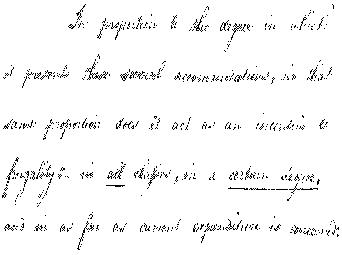 In proportion to the degree in which
it presents these several accommodations, in that
same proportion does it act as an incentive to
frugality:- in all shapes, in a certain degree,
and in as far as current expenditure is concerned: